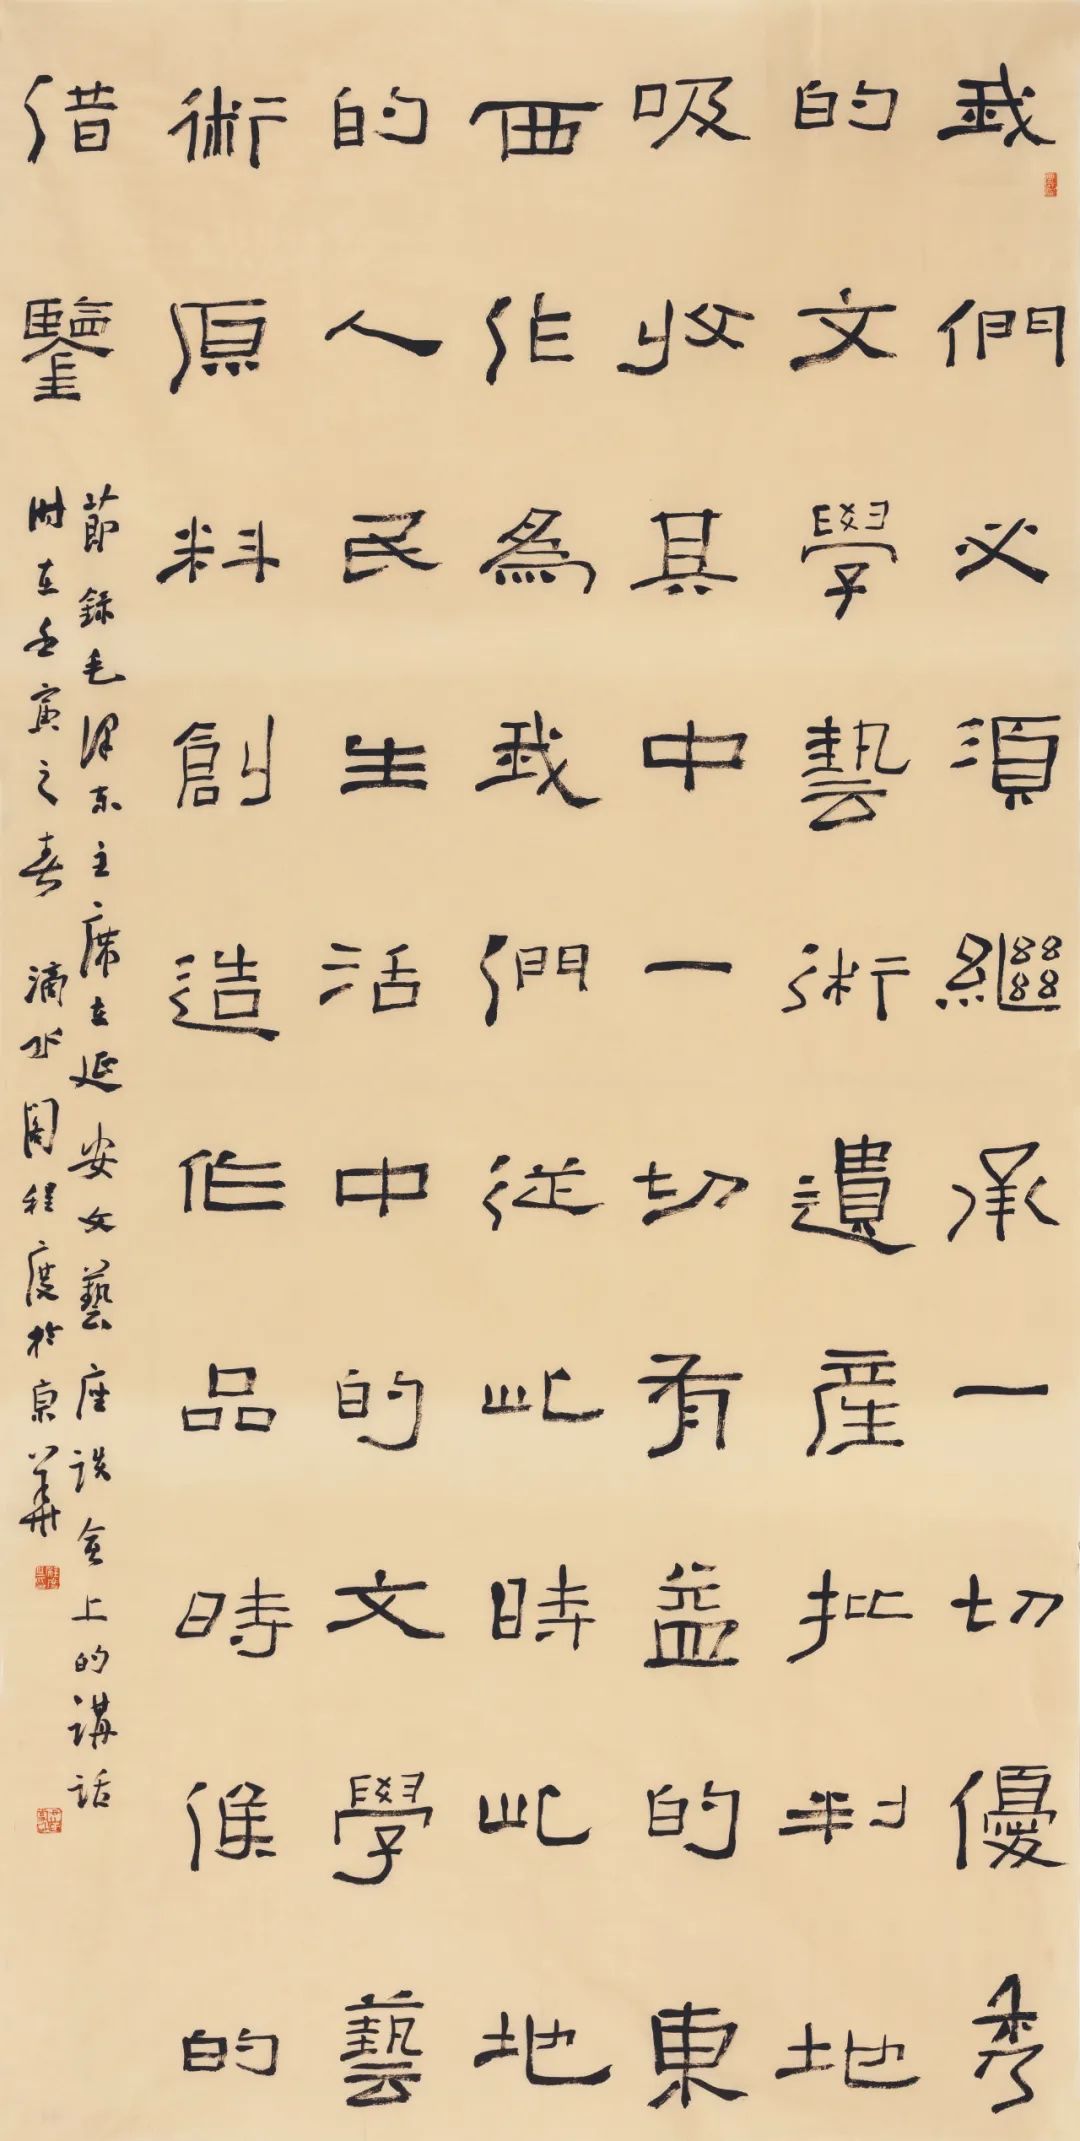 我們必須繼承一切優秀
的文學藝術遺産批判地
吸收其中一切有益的東
西作為我們從此時此地
的人民生活中的文學藝
術原料創造作品時候的
借鑒
節錄毛澤东主席在延安文藝座談会上的講話
时在壬寅之春 滴水閣程度於京華